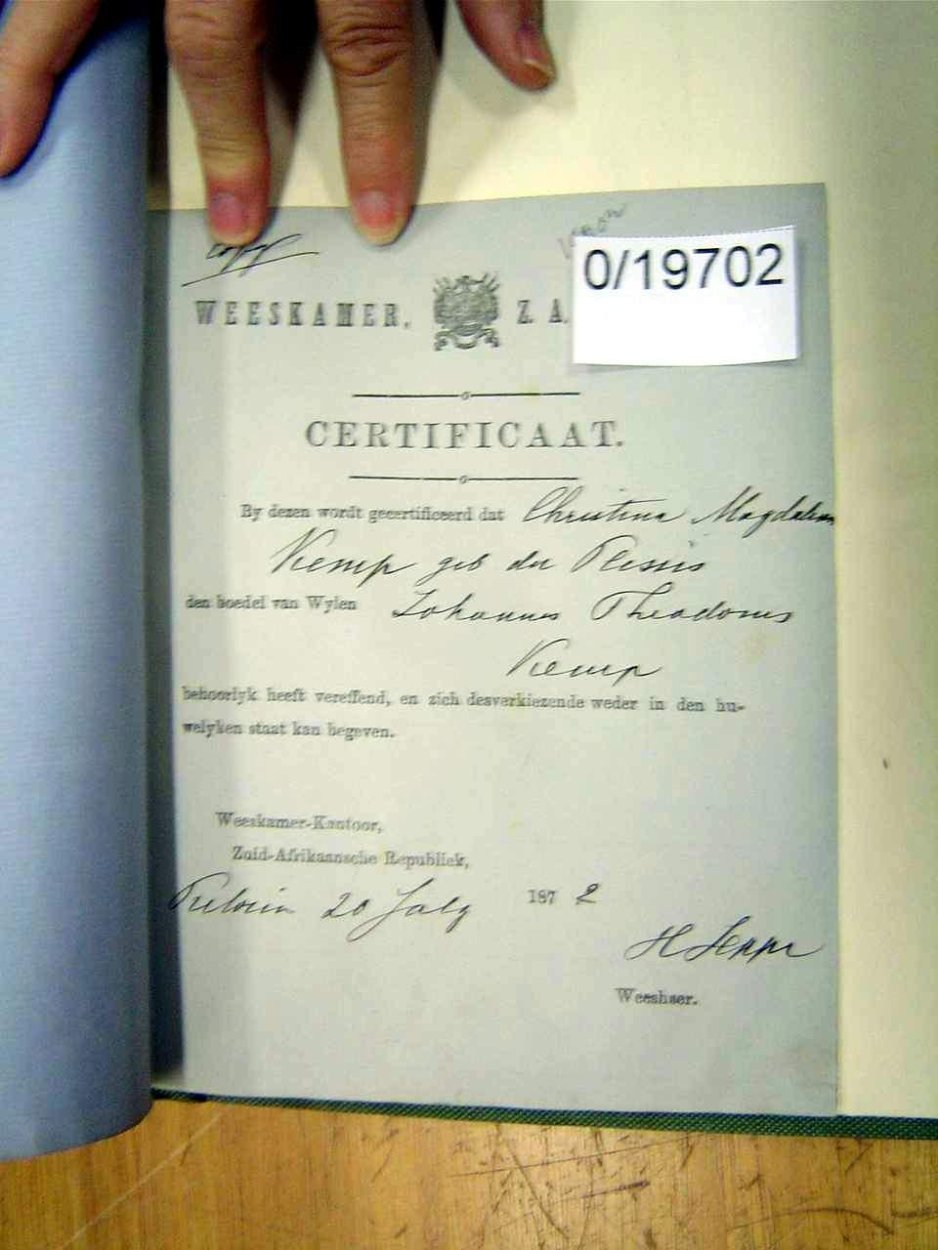 copy
0/19702
WEESKAMER, Z. A.
CERTIFICAAT.
By dezen wordt gecertificeerd dat Christina Magdalena
Kemp geb du Plessis
den boedel van Wylen Johannes Theodorus
Kemp
behoorlyk heeft vereffend, en zich desverkiezende weder in den hu-
welyken staat kan begeven.
Weeskamer-Kantoor,
Zuid-Afrikaansche Republiek,
20 July 1872
H
Weesheer.